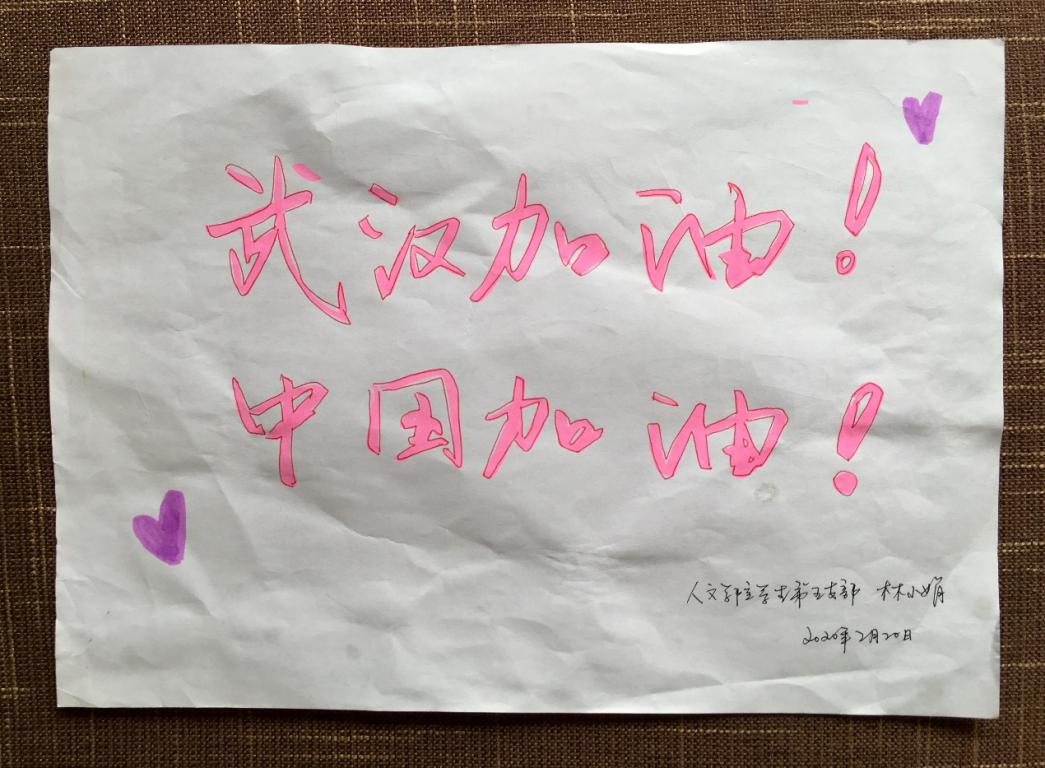 武汉加油！
中国加油！
人文学院学生第五支部 林小娟
2020年2月20日